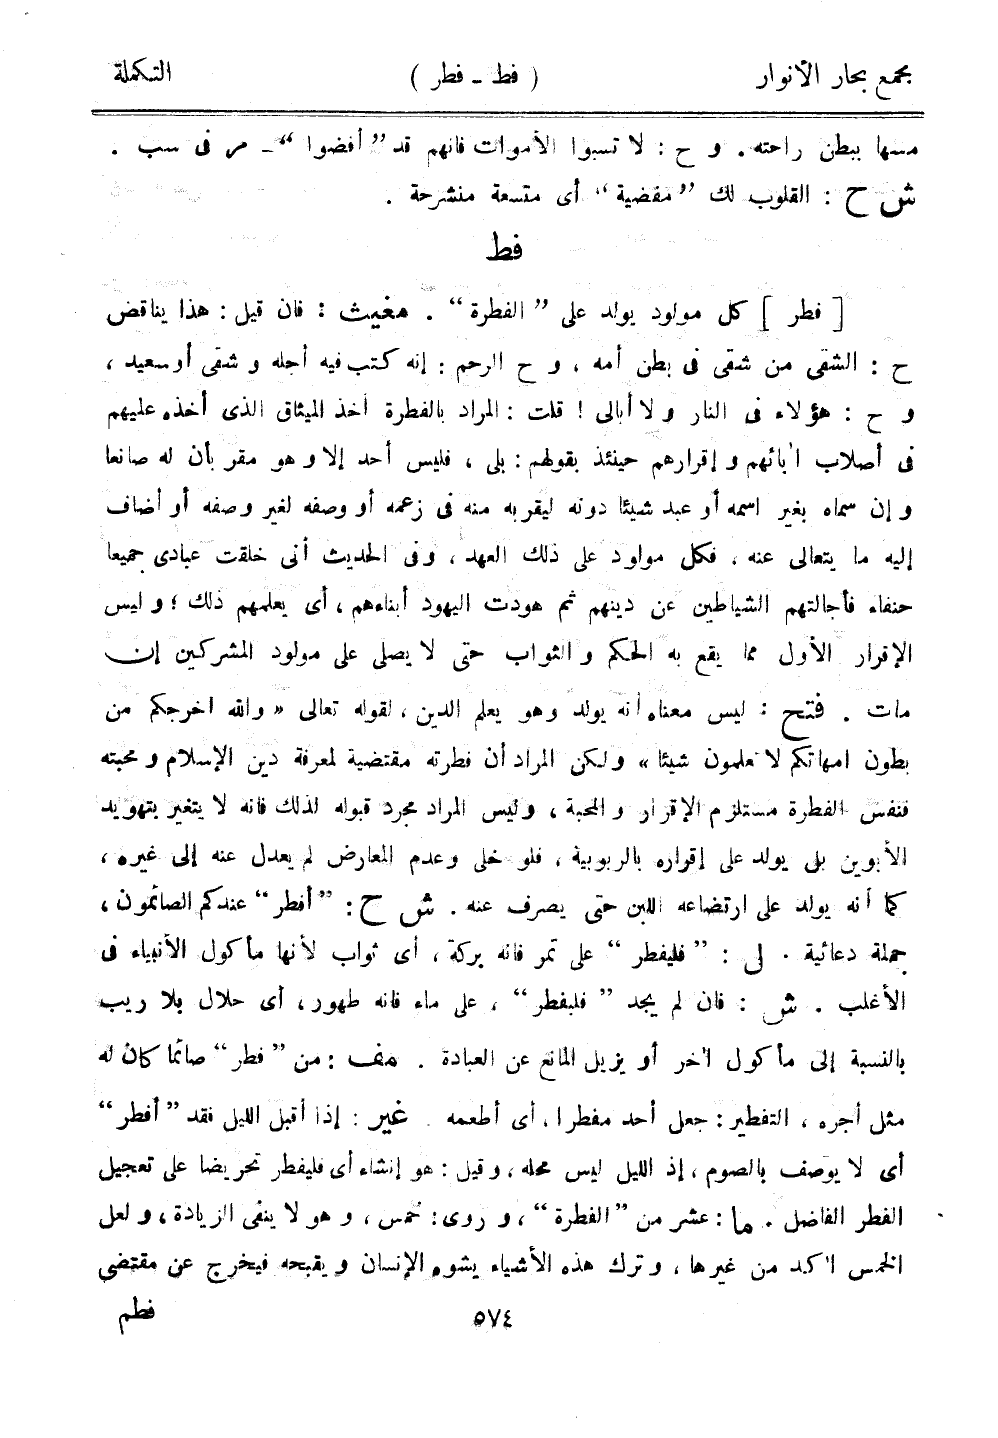 مجمع بحار الأنوار ( فط - فطر ) التكملة
مسها ببطن راحته . و ح : لا تسبوا الأموات فانهم قد ”أفضوا“ - مر فى سب .
ش ح : القلوب لك ”مفضية“ أى متسعة منشرحة .
فط
[ فطر ] كل مولود يولد على ”الفطرة“ . مغيث : فان قيل : هذا يناقض
ح : الشقى من شقى فى بطن أمه ، و ح الرحم : إنه كتب فيه أجله و شقى أو سعيد ،
و ح : هؤلاء فى النار و لا أبالى ! قلت : المراد بالفطرة أخذ الميثاق الذى أخذه عليهم
فى أصلاب اٰبائهم و إقرارهم حينئذ بقولهم : بلى ، فليس أحد إلا و هو مقر بأن له صانعا
و إن سماه بغير اسمه أو عبد شيئا دونه ليقربه منه فى زعمه أو وصفه لغير وصفه أو أضاف
إليه ما يتعالى عنه ، فكل مولود على ذلك العهد ، وفى الحديث أنى خلقت عبادى جميعا
حنفاء فأجالتهم الشياطين عن دينهم ثم هودت اليهود أبناءهم ، أى يعلمهم ذلك ؛ و ليس
الإقرار الأول مما يقع به الحكم و الثواب حتى لا يصلى على مولود المشركين إن
مات . فتح : ليس معناه أنه يولد وهو يعلم الدين ، لقوله تعالى « والله اخرجكم من
بطون امهاتكم لا تعلمون شيئا » ولكن المراد أن فطرته مقتضية لمعرفة دين الإسلام و محبته
فنفس الفطرة مستلزم الإقرار و المحبة ، وليس المراد مجرد قبوله لذلك فانه لا يتغير بتهويد
الأبوين بلى يولد على إقراره بالربوبية ، فلو خلى وعدم المعارض لم يعدل عنه إلى غيره ،
كما أنه يولد على ارتضاعه اللبن حتى يصرف عنه . ش ح : ”أفطر“ عندكم الصائمون ،
جملة دعائية . لى : ”فليفطر“ على تمر فانه بركة ، أى ثواب لأنها مأكول الأنبياء فى
الأغلب . ش : فان لم يجد ”فليفطر“ ، على ماء فانه طهور ، أى حلال بلا ريب
بالنسبة إلى مأكول اٰخر أو يزيل المانع عن العبادة . مف : من ”فطر“ صائما كان له
مثل أجره ، التفطير : جعل أحد مفطرا ، أى أطعمه . غير : إذا أقبل الليل فقد ”أفطر“
أى لا يوصف بالصوم ، إذ الليل ليس محله ، وقيل : هو إنشاء أى فليفطر تحريضا على تعجيل
الفطر الفاضل . ما : عشر من ”الفطرة“ ، و روى : خمس ، و هو لا ينفى الزيادة ، و لعل
الخمس اٰكد من غيرها ، و ترك هذه الأشياء يشوه الإنسان و يقبحه فيخرج عن مقتضى
٥٧٤ فطم